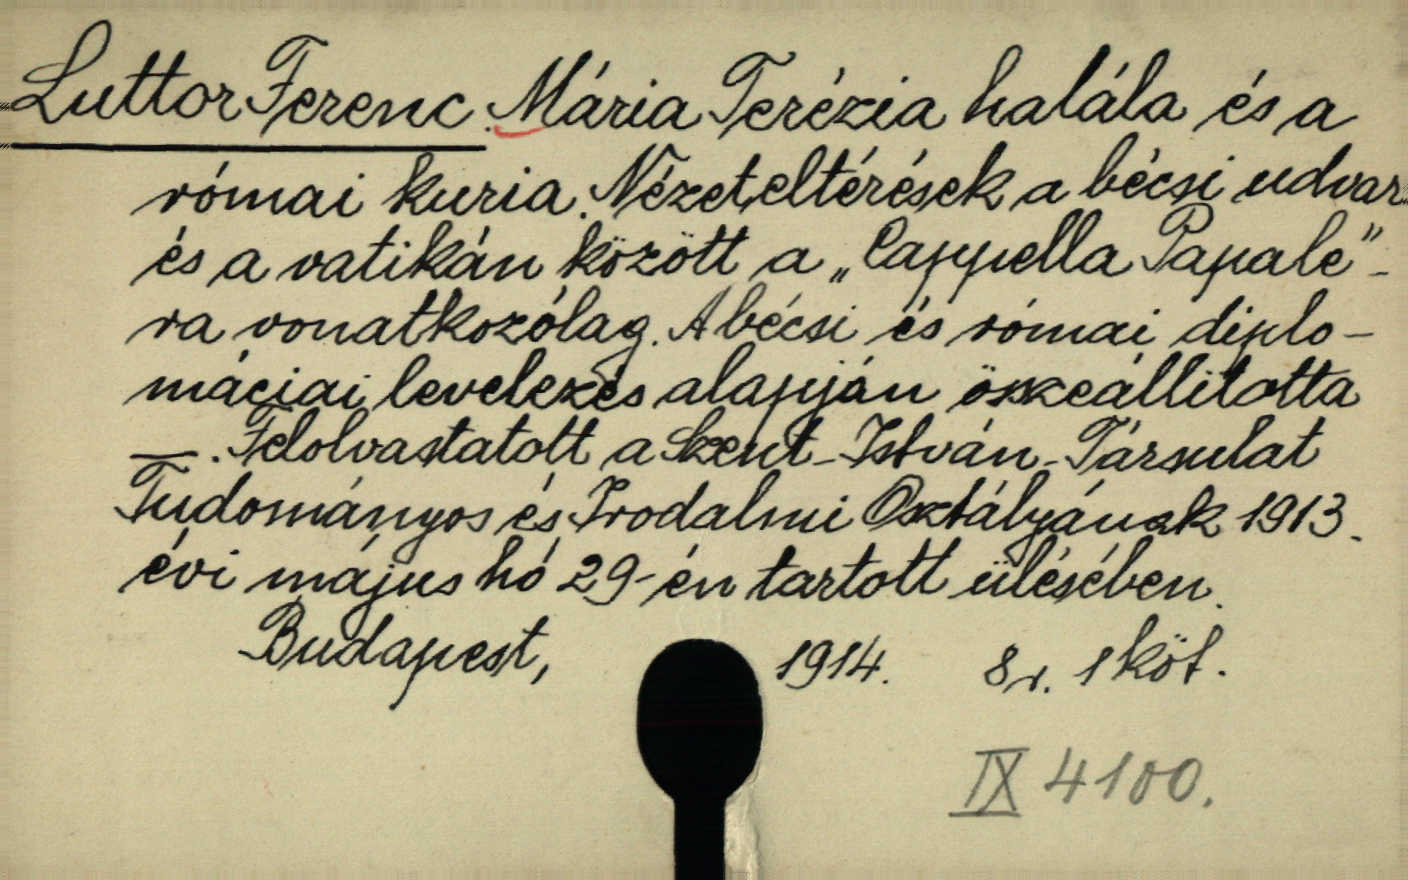 Luttor Ferenc. Mária Terézia halála és a
római kuria. Nézeteltérések a bécsi udvar
és a vatikán között a „Cappella Papale"-
ra vonatkozólag. A bécsi és római diplo-
máciai levelezés alapján összeállitotta
—. Felolvastatott a Szent-István-Társulat
Tudományos és Irodalmi Osztályának 1913.
évi május hó 29-én tartott ülésében.
Budapest, 1914. 8r. 1 köt.
IX 4100.